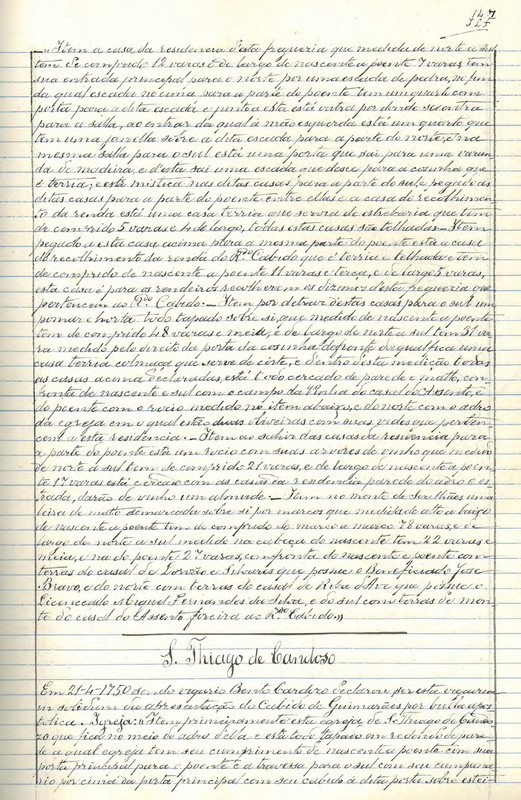 147
127
„Item a casa da residencia d'esta freguezia que medida de norte a sul
tem de comprido 12 varas e de largo de nascente a poente 7 varas tem
sua entrada principal para o norte por uma escada de pedra, no fim
da qual escada no cima para a parte do poente tem um quarto com
porta para a dita escada e junto a esta está outra por donde se entra
para a salla, ao entrar da qual á mão esquerda está um quarto que
tem uma janella sobre a dita escada para a parte do norte, e na
mesma salla para o sul está uma porta que sai para uma varan-
da de madeira, e d'esta sai uma escada que desce para a cosinha que
é terria; e está mistica nas ditas casas para a parte do sul e pegado ás
ditas casas para a parte do poente entre ellas e a casa do recolhimen-
to da renda está uma casa terria que servira de estrebaria que tem
de comprido 5 varas e 4 de largo, todas estas casas são telhadas.- Item
pegado a esta casa acima para a mesma parte do poente está a casa
do recolhimento da renda do R.do Cabido que é terria e telhada e tem
de comprido de nascente a poente 11 varas e terça, e de largo 5 varas,
esta casa é para os rendeiros recolherem os dizimos d'esta freguezia que
pertencem ao R.do Cabido.- Item por detraz d'estas casas para o sul um
pomar e horta todo tapado sobre si, que medido de nascente a poente
tem de comprido 48 varas e meia, e de largo de norte a sul tem 31 va-
ra medido pelo direito da porta da cosinha defronte da qual fica uma
casa terria colmaça que serve de côrte, e dentro d'esta medição todas
as casas acima declaradas, está todo cercado de parede e matto, con-
fronta de nascente e sul com o campo da Vinha do casal do Assento, e
do poente com o rocio medido no item abaixo, e do norte com o adro
da egreja em o qual estão duas oliveiras com suas vides que perten-
cem a esta residencia.- Item ao sahir das casas da residencia para
a parte do poente está um rocio com suas arvores de vinho que medido
de norte a sul tem de comprido 21 varas, e de largo do nascente a poen-
te 17 varas está cercado com as casas da residencia parede do adro e es-
trada, darão de vinho um almude.- Item no monte de
leira de matto demarcada sobre si por marcos que medida de alto a baixo
de nascente a poente tem de comprido de marco a marco 78 varas, e de
largo de norte a sul medido na cabeça do nascente tem 22 varas e
meia, e na do poente 27 varas, confronta do nascente e poente com
terras do casal de Lorvão e que possue o Beneficiado José
Bravo, e do norte com terras do casal de Riba d'Ave que possue o
Licenceado Miguel Fernandes da Silva, e do sul com terras do mon-
te do casal do Assento foreira ao R.do Cabido.»
S. Thiago de Candoso
Em 21-4-1750 sendo vigario Bento Cardozo declarou ser esta vigararia
in solidum da apresentação do Cabido de Guimarães por bulla apos-
tolica.- Igreja: «Item primeiramente esta egreja de S. Thiago de Cando-
zo que fica no meio do adro d'ella e está todo tapado em redondo de pare-
de a qual egreja tem seu cumprimento de nascente a poente com sua
porta principal para o poente e a travessa para o sul com seu campana-
rio por cima da porta principal com seu cabido á dita porta sobre estei-